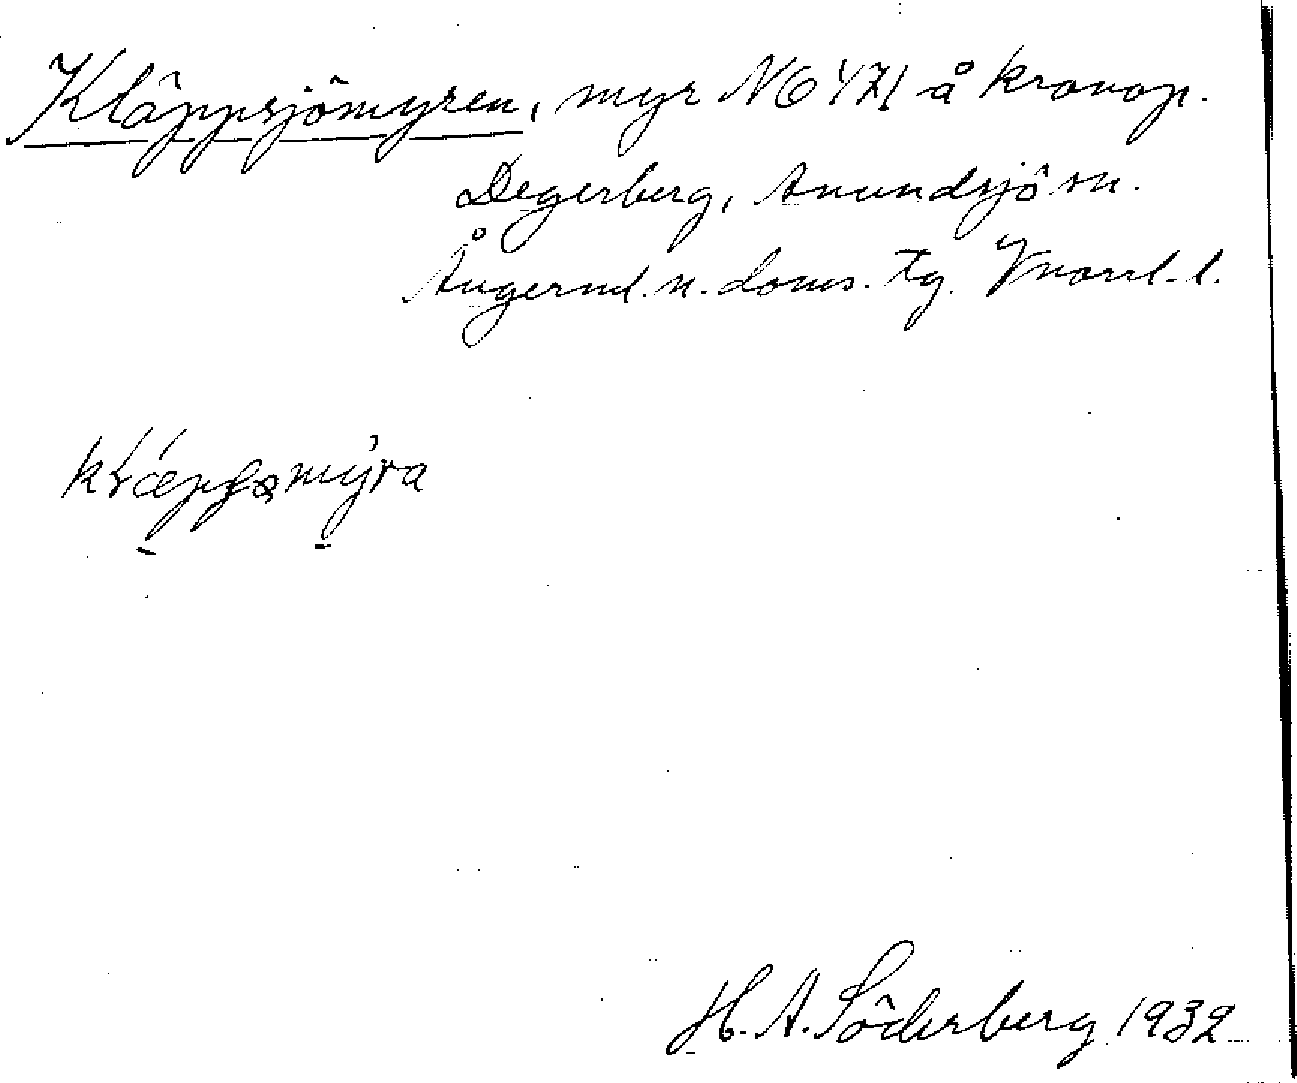 Kläppsjömyren, myr N6471 å kronop.
Degerberg, Anundsjö sn.
Ångerml. n. doms. tg. Vnorrl. l.
myra
H. A. Söderberg 1932